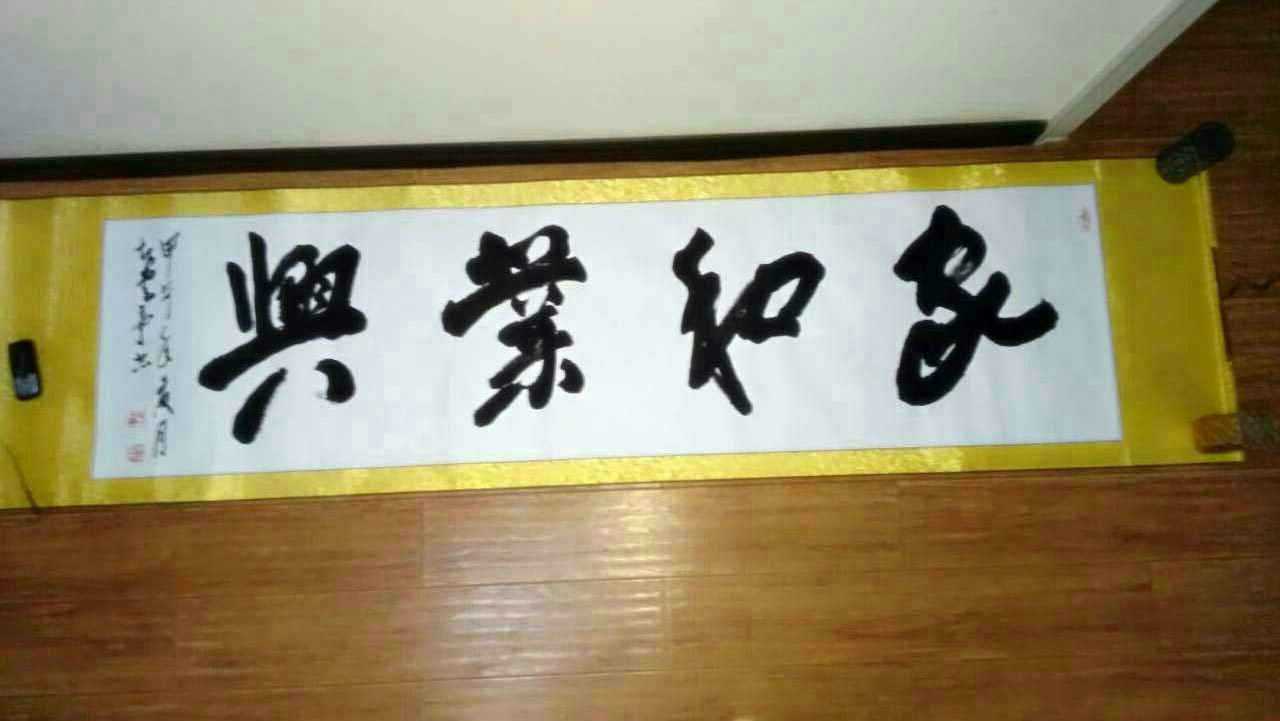 家和業興
甲午年夏月